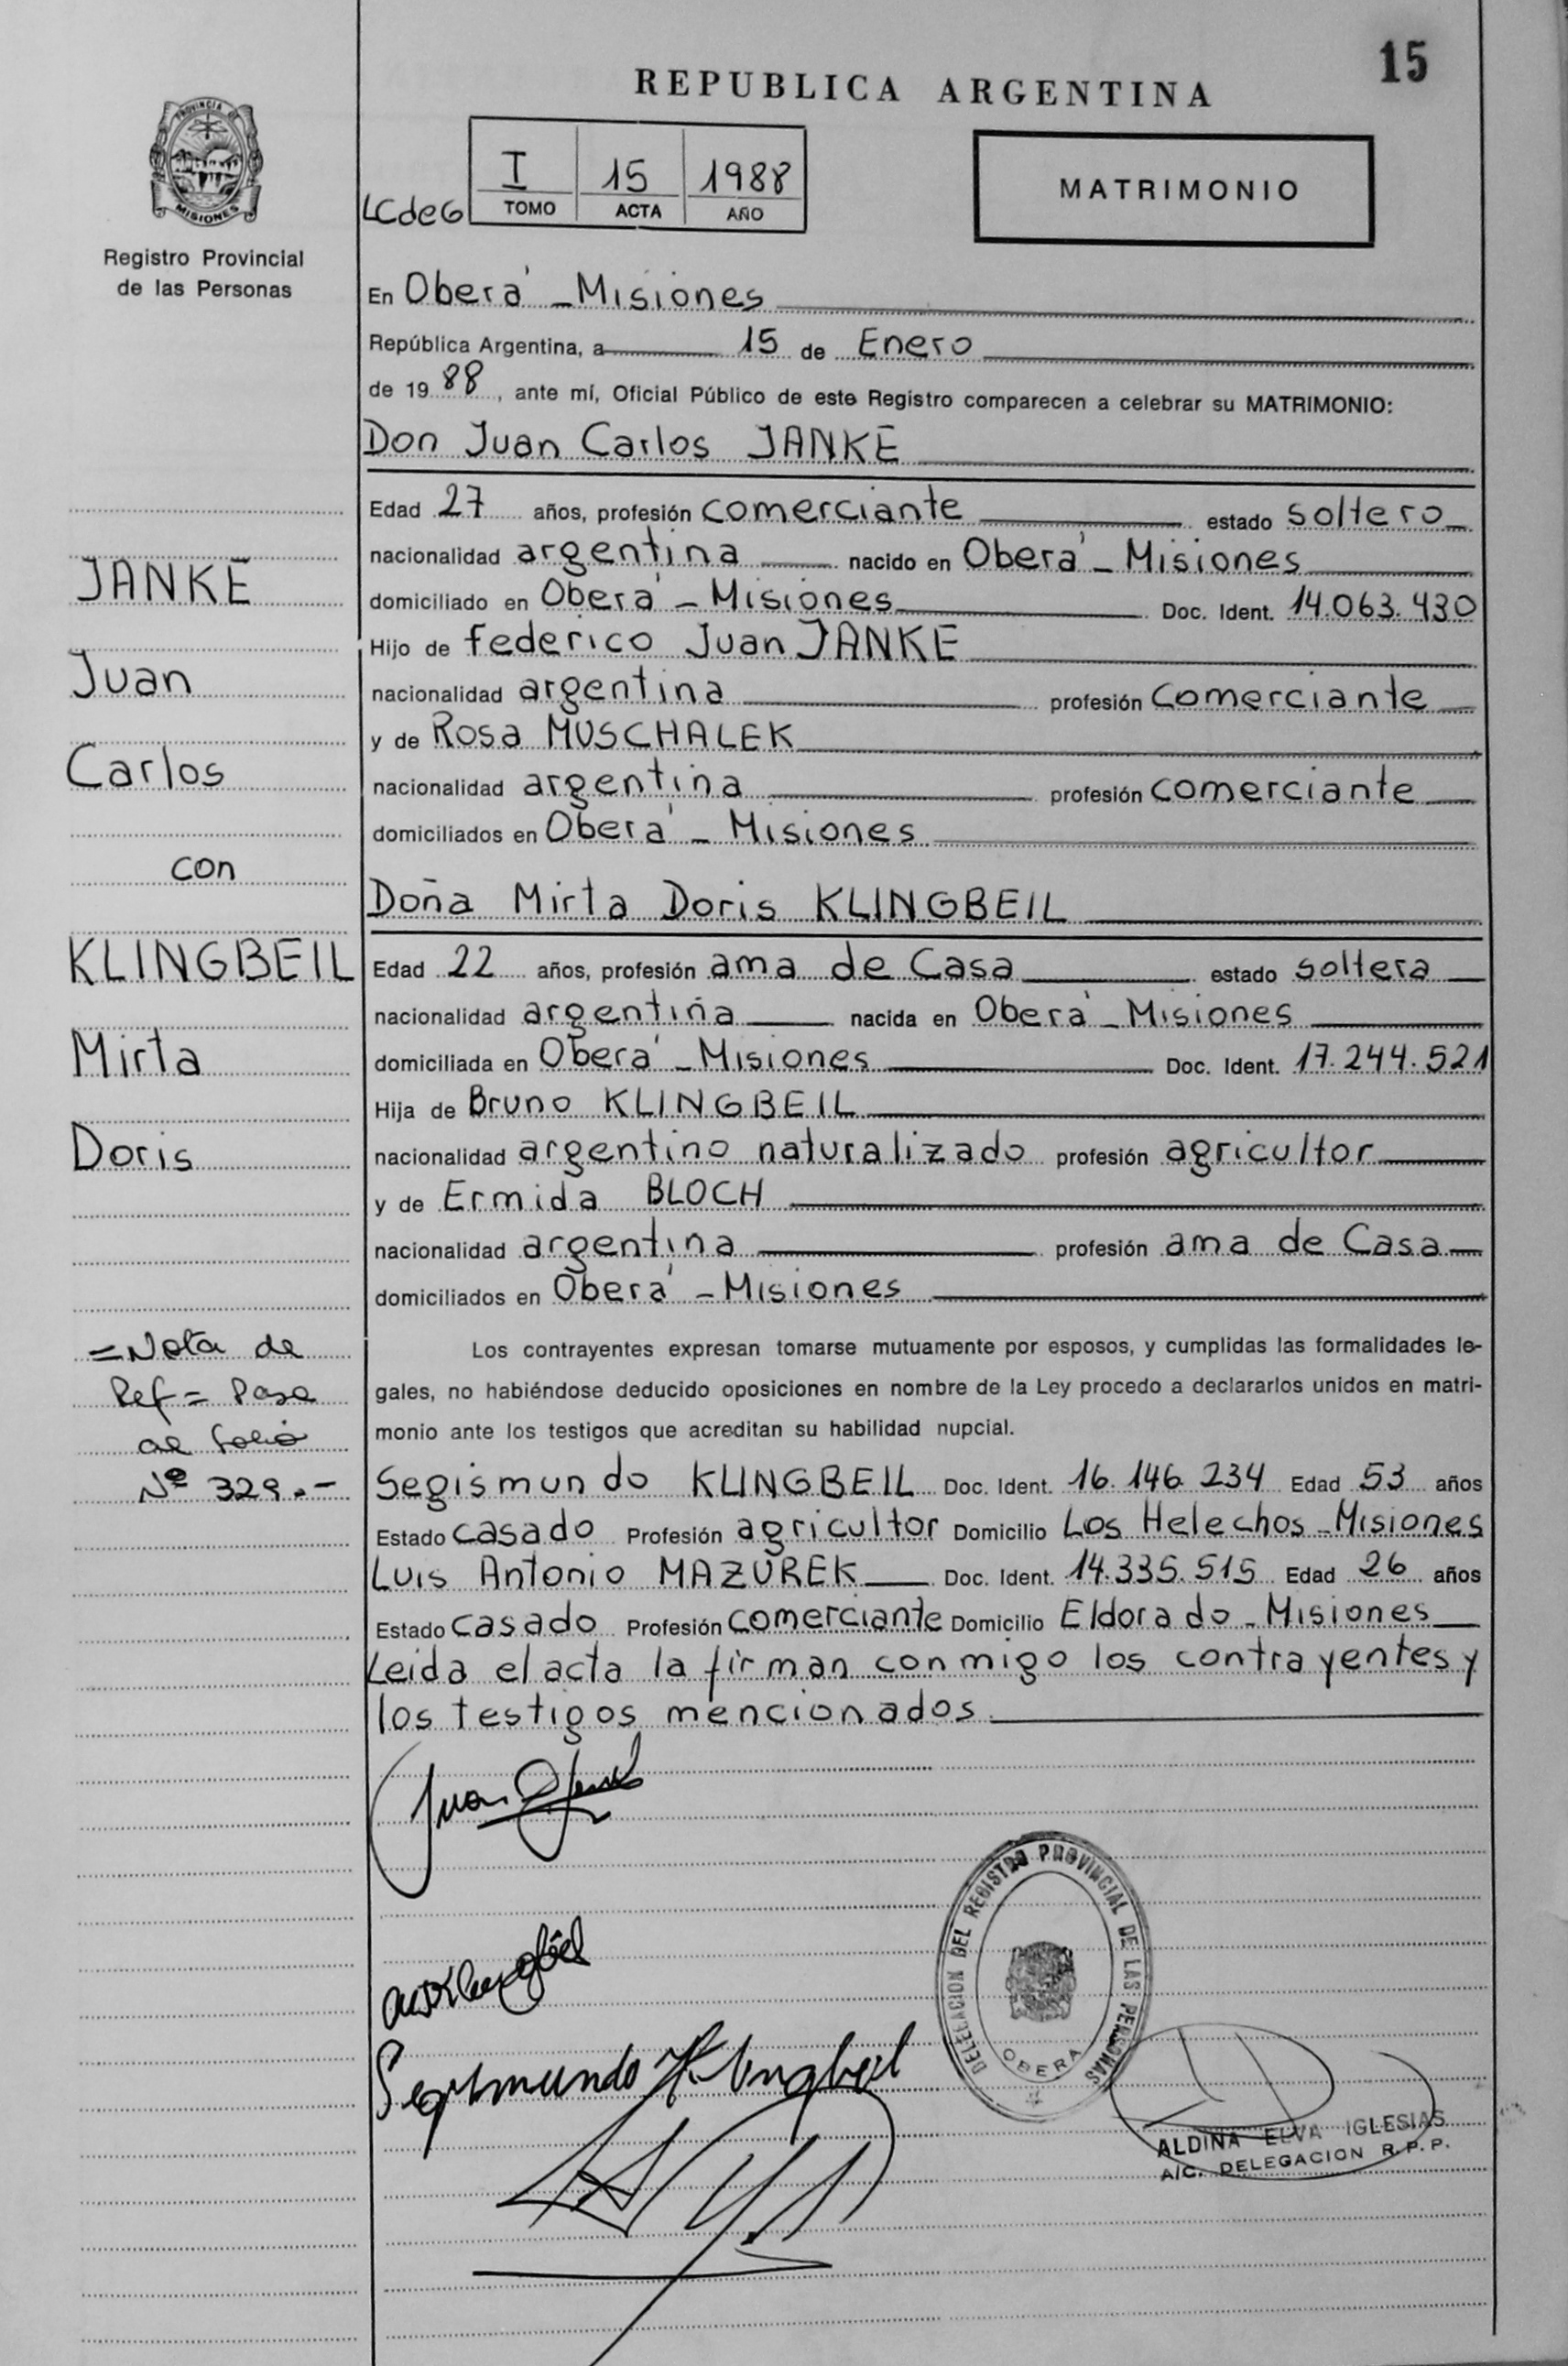 15
REPUBLICA ARGENTINA
PROVINCIA DE
MISIONES
Registro Provincial
de las Personas
LCdeG
I 15 1988
TOMO ACTA AÑO
MATRIMONIO
En Oberá - Misiones
República Argentina, a 15 de Enero
de 19 88, ante mí, Oficial Público de este Registro comparecen a celebrar su MATRIMONIO:
Don Juan Carlos JANKE
Edad 27 años, profesión comerciante estado soltero
nacionalidad argentina nacido en Oberá - Misiones
domiciliado en Oberá - Misiones Doc. Ident. 14.063.430
Hijo de federico Juan JANKE
nacionalidad argentina profesión comerciante
y de Rosa MUSCHALEK
nacionalidad argentina profesión comerciante
domiciliados en Oberá - Misiones
Doña Mirta Doris KLINGBEIL
Edad 22 años, profesión ama de Casa estado soltera
nacionalidad argentina nacida en Oberá - Misiones
domiciliada en Oberá - Misiones Doc. Ident. 17.244.521
Hija de Bruno KLINGBEIL
nacionalidad argentino naturalizado profesión agricultor
y de Ermida BLOCH
nacionalidad argentina profesión ama de Casa
domiciliados en Oberá - Misiones
Los contrayentes expresan tomarse mutuamente por esposos, y cumplidas las formalidades le-
gales, no habiéndose deducido oposiciones en nombre de la Ley procedo a declararlos unidos en matri-
monio ante los testigos que acreditan su habilidad nupcial.
Segismundo KLINGBEIL Doc. Ident. 16.146.234 Edad 53 años
Estado casado Profesión agricultor Domicilio Los Helechos - Misiones
Luis Antonio MAZUREK Doc. Ident. 14.335.515 Edad 26 años
Estado casado Profesión comerciante Domicilio Eldorado - Misiones
Leida el acta la firman conmigo los contrayentes y
los testigos mencionados.
JANKE
Juan
Carlos
con
KLINGBEIL
Mirta
Doris
=Nota de
Ref= Pasa
al folio
Nº 329.-
Juan
Segismundo Klingbeil
DELEGACION DEL REGISTRO PROVINCIAL DE LAS PERSONAS
OBERA
ALDINA ELVA IGLESIAS
A/C. DELEGACION R.P.P.